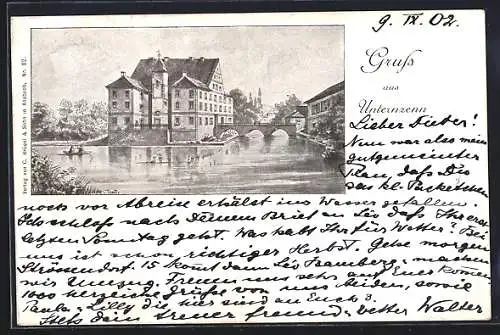 9. IX. 02.
Gruß
aus
Unternzenn
Verlag von C. Brügel & Sohn in Ansbach. Nr. 92.
Lieber Dieter!
Nun war also mein
gutgemeinter
Plan, daß Du
das kl. Packetchen
noch vor Abreise erhälst ins Wasser gefallen.
Ich schloß nach Deinem Brief an daß Ihr erst
letzten Sonntag geht. Was habt Ihr für Wetter? Bei
uns ist schon richtiger Herbst. Gehe morgen
15 komt dann
wir Umzug. Freuen uns sehr auf Euer komen
1000 herzliche Grüße von uns Beiden, sowie
Paula & Lilly die hier sind an Euch 3.
Stets Dein treuer Freund & Vetter Walter